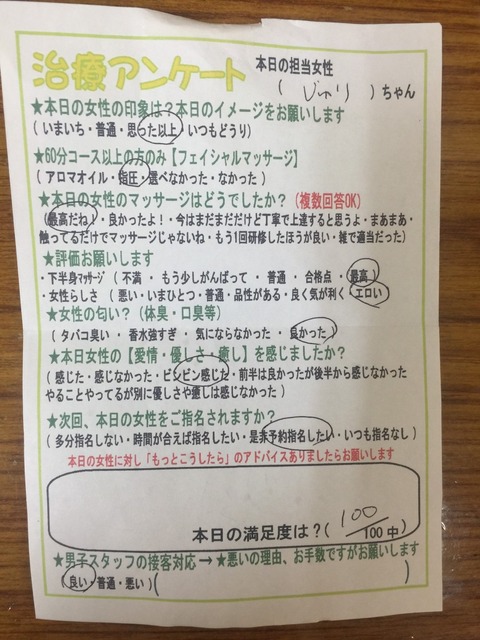 治療アンケート
本日の担当女性
( じゅり )ちゃん
★本日の女性の印象は?本日のイメージをお願いします
( いまいち・普通・思った以上・いつもどうり )
★60分コース以上の方のみ【フェイシャルマッサージ】
( アロマオイル・指圧・選べなかった・なかった )
★本日の女性のマッサージはどうでしたか? (複数回答OK)
(最高だね!・良かったよ!・今はまだまだだけど丁寧で上達すると思うよ・まあまあ・
触ってるだけでマッサージじゃないね・もう1回研修したほうが良い・雑で適当だった)
★評価お願いします
・下半身マッサージ ( 不満 ・ もう少しがんばって ・ 普通 ・ 合格点 ・ 最高 )
・女性らしさ ( 悪い・いまひとつ・普通・品性がある・良く気が利く・エロい )
★女性の匂い? (体臭・口臭等)
( タバコ臭い ・ 香水強すぎ ・ 気にならなかった ・ 良かった )
★本日女性の【愛情・優しさ・癒し】を感じましたか?
( 感じた・感じなかった・ビンビン感じた・前半は良かったが後半から感じなかった
やることやってるが別に優しさや癒しは感じなかった )
★次回、本日の女性をご指名されますか?
( 多分指名しない・時間が合えば指名したい・是非予約指名したい・いつも指名なし )
本日の女性に対し「もっとこうしたら」のアドバイスありましたらお願いします
本日の満足度は? ( 100 / 100 中 )
★男子スタッフの接客対応 → ★悪いの理由、お手数ですがお願いします
( 良い・普通・悪い ) ( )